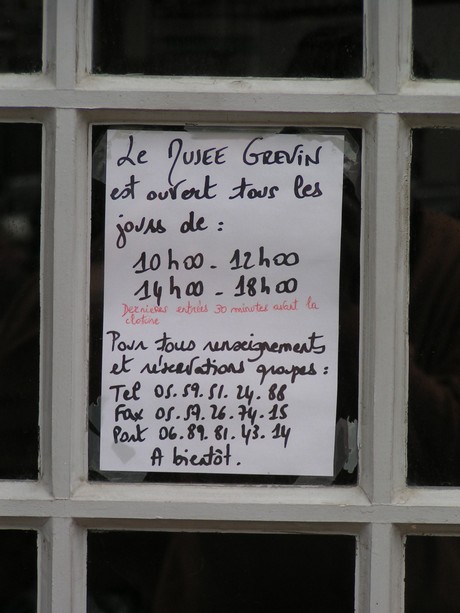 Le Musee Grevin
est ouvert tous les
jours de :
10h00 - 12h00
14h00 - 18h00
Dernieres entrées 30 minutes avant la
cloture
Pour tous renseignements
et réservations groupes :
Tel 05.59.51.24.88
Fax 05.59.26.74.15
Port 06.89.81.43.14
A bientôt.